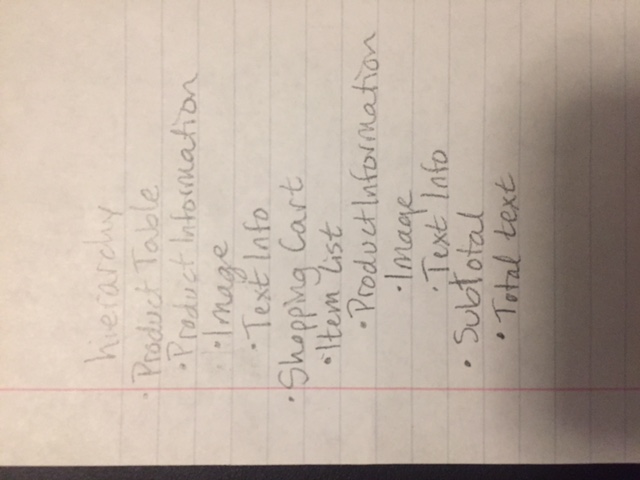 hierarchy
· Product Table
· Product Information
· Image
· Text Info
· Shopping Cart
· Item List
· Product Information
· Image
· Text Info
· SubTotal
· Total text